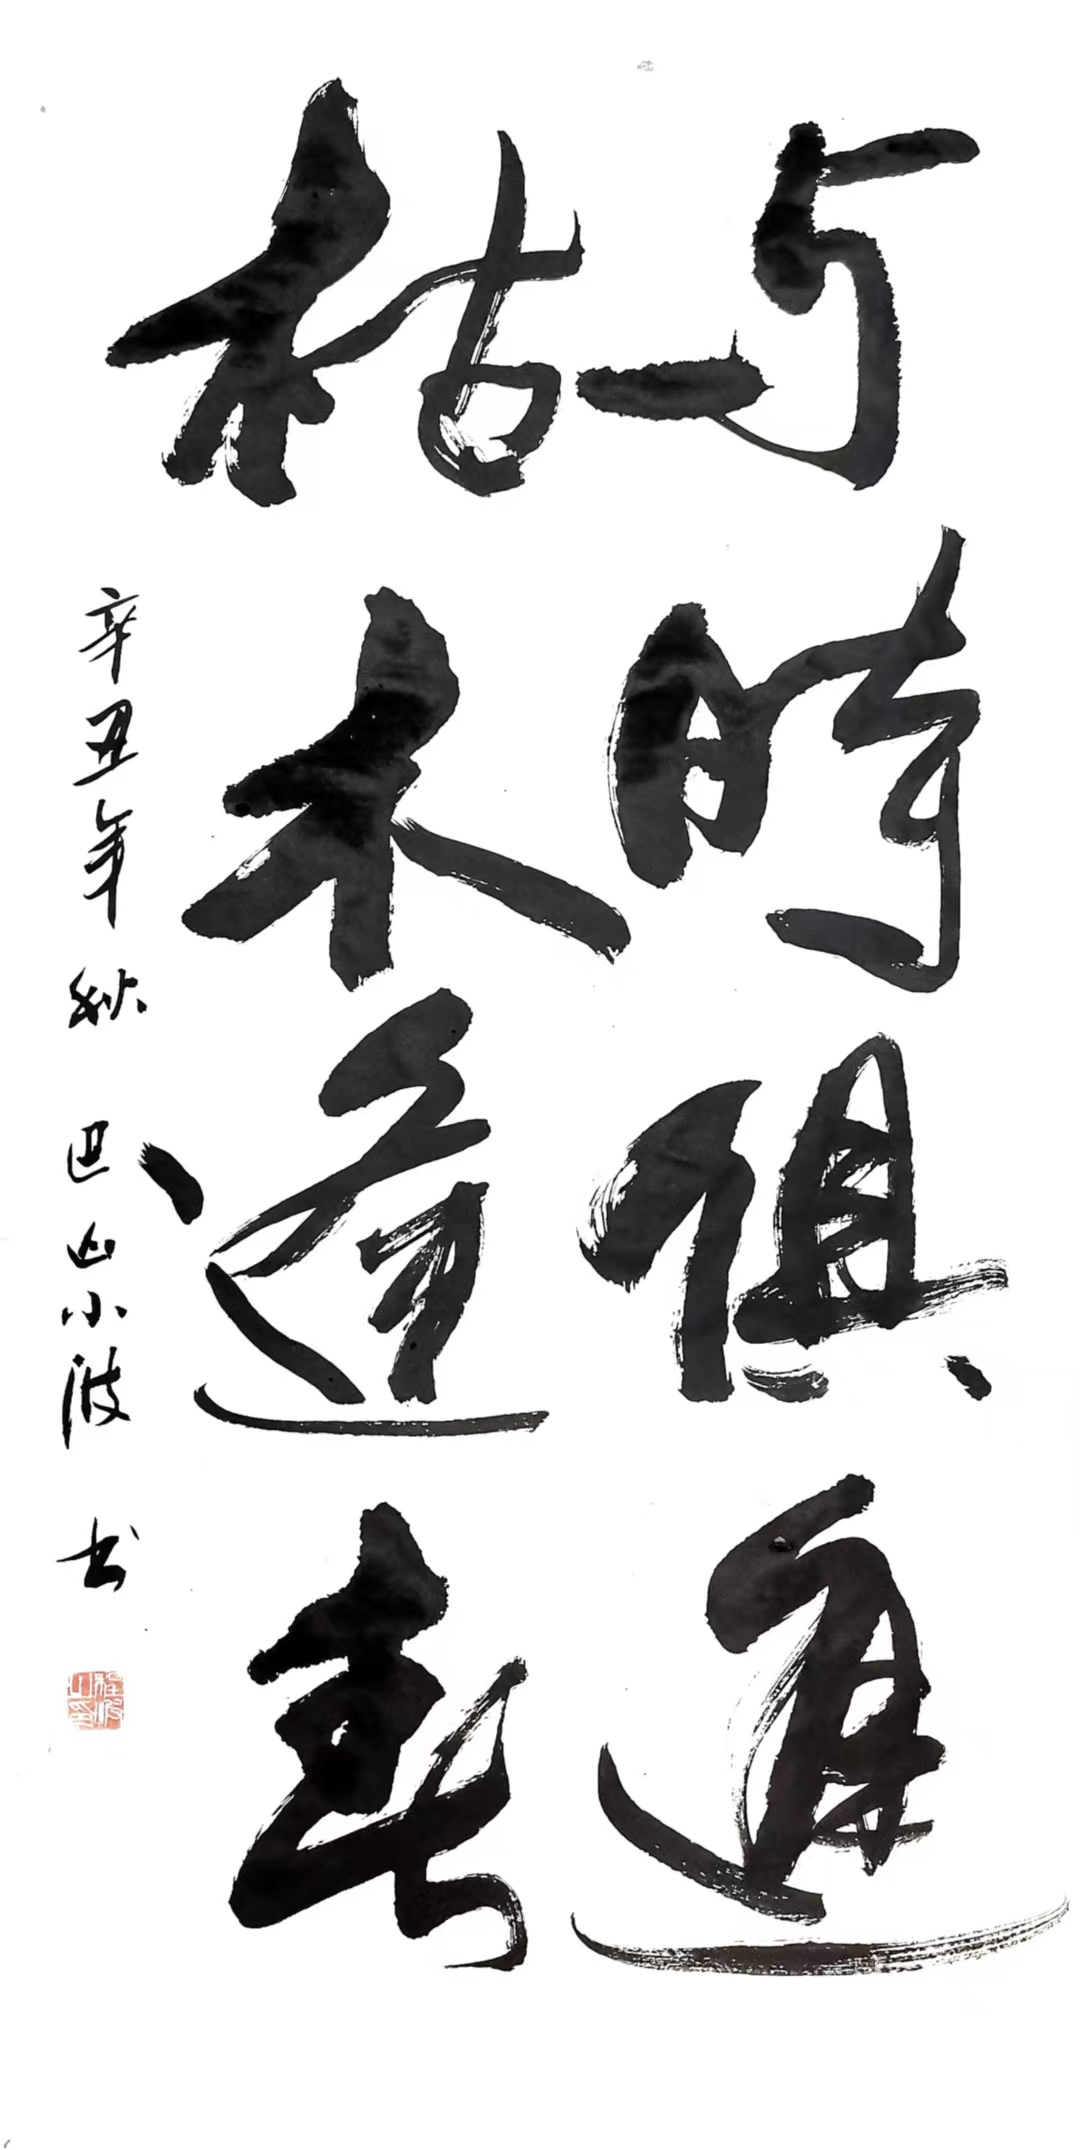 与時俱進
枯木逢春
辛丑年 秋 巴山小波 书